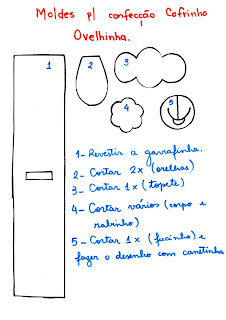 Moldes p/ confecção Cofrinho
Ovelhinha.
1
2
3
4
5
1- Revestir a garrafinha.
2- Cortar 2x (orelhas)
3- Cortar 1x (topete)
4- Cortar vários (corpo e
rabinho)
5- Cortar 1x (fucinho) e
fazer o desenho com canetinha